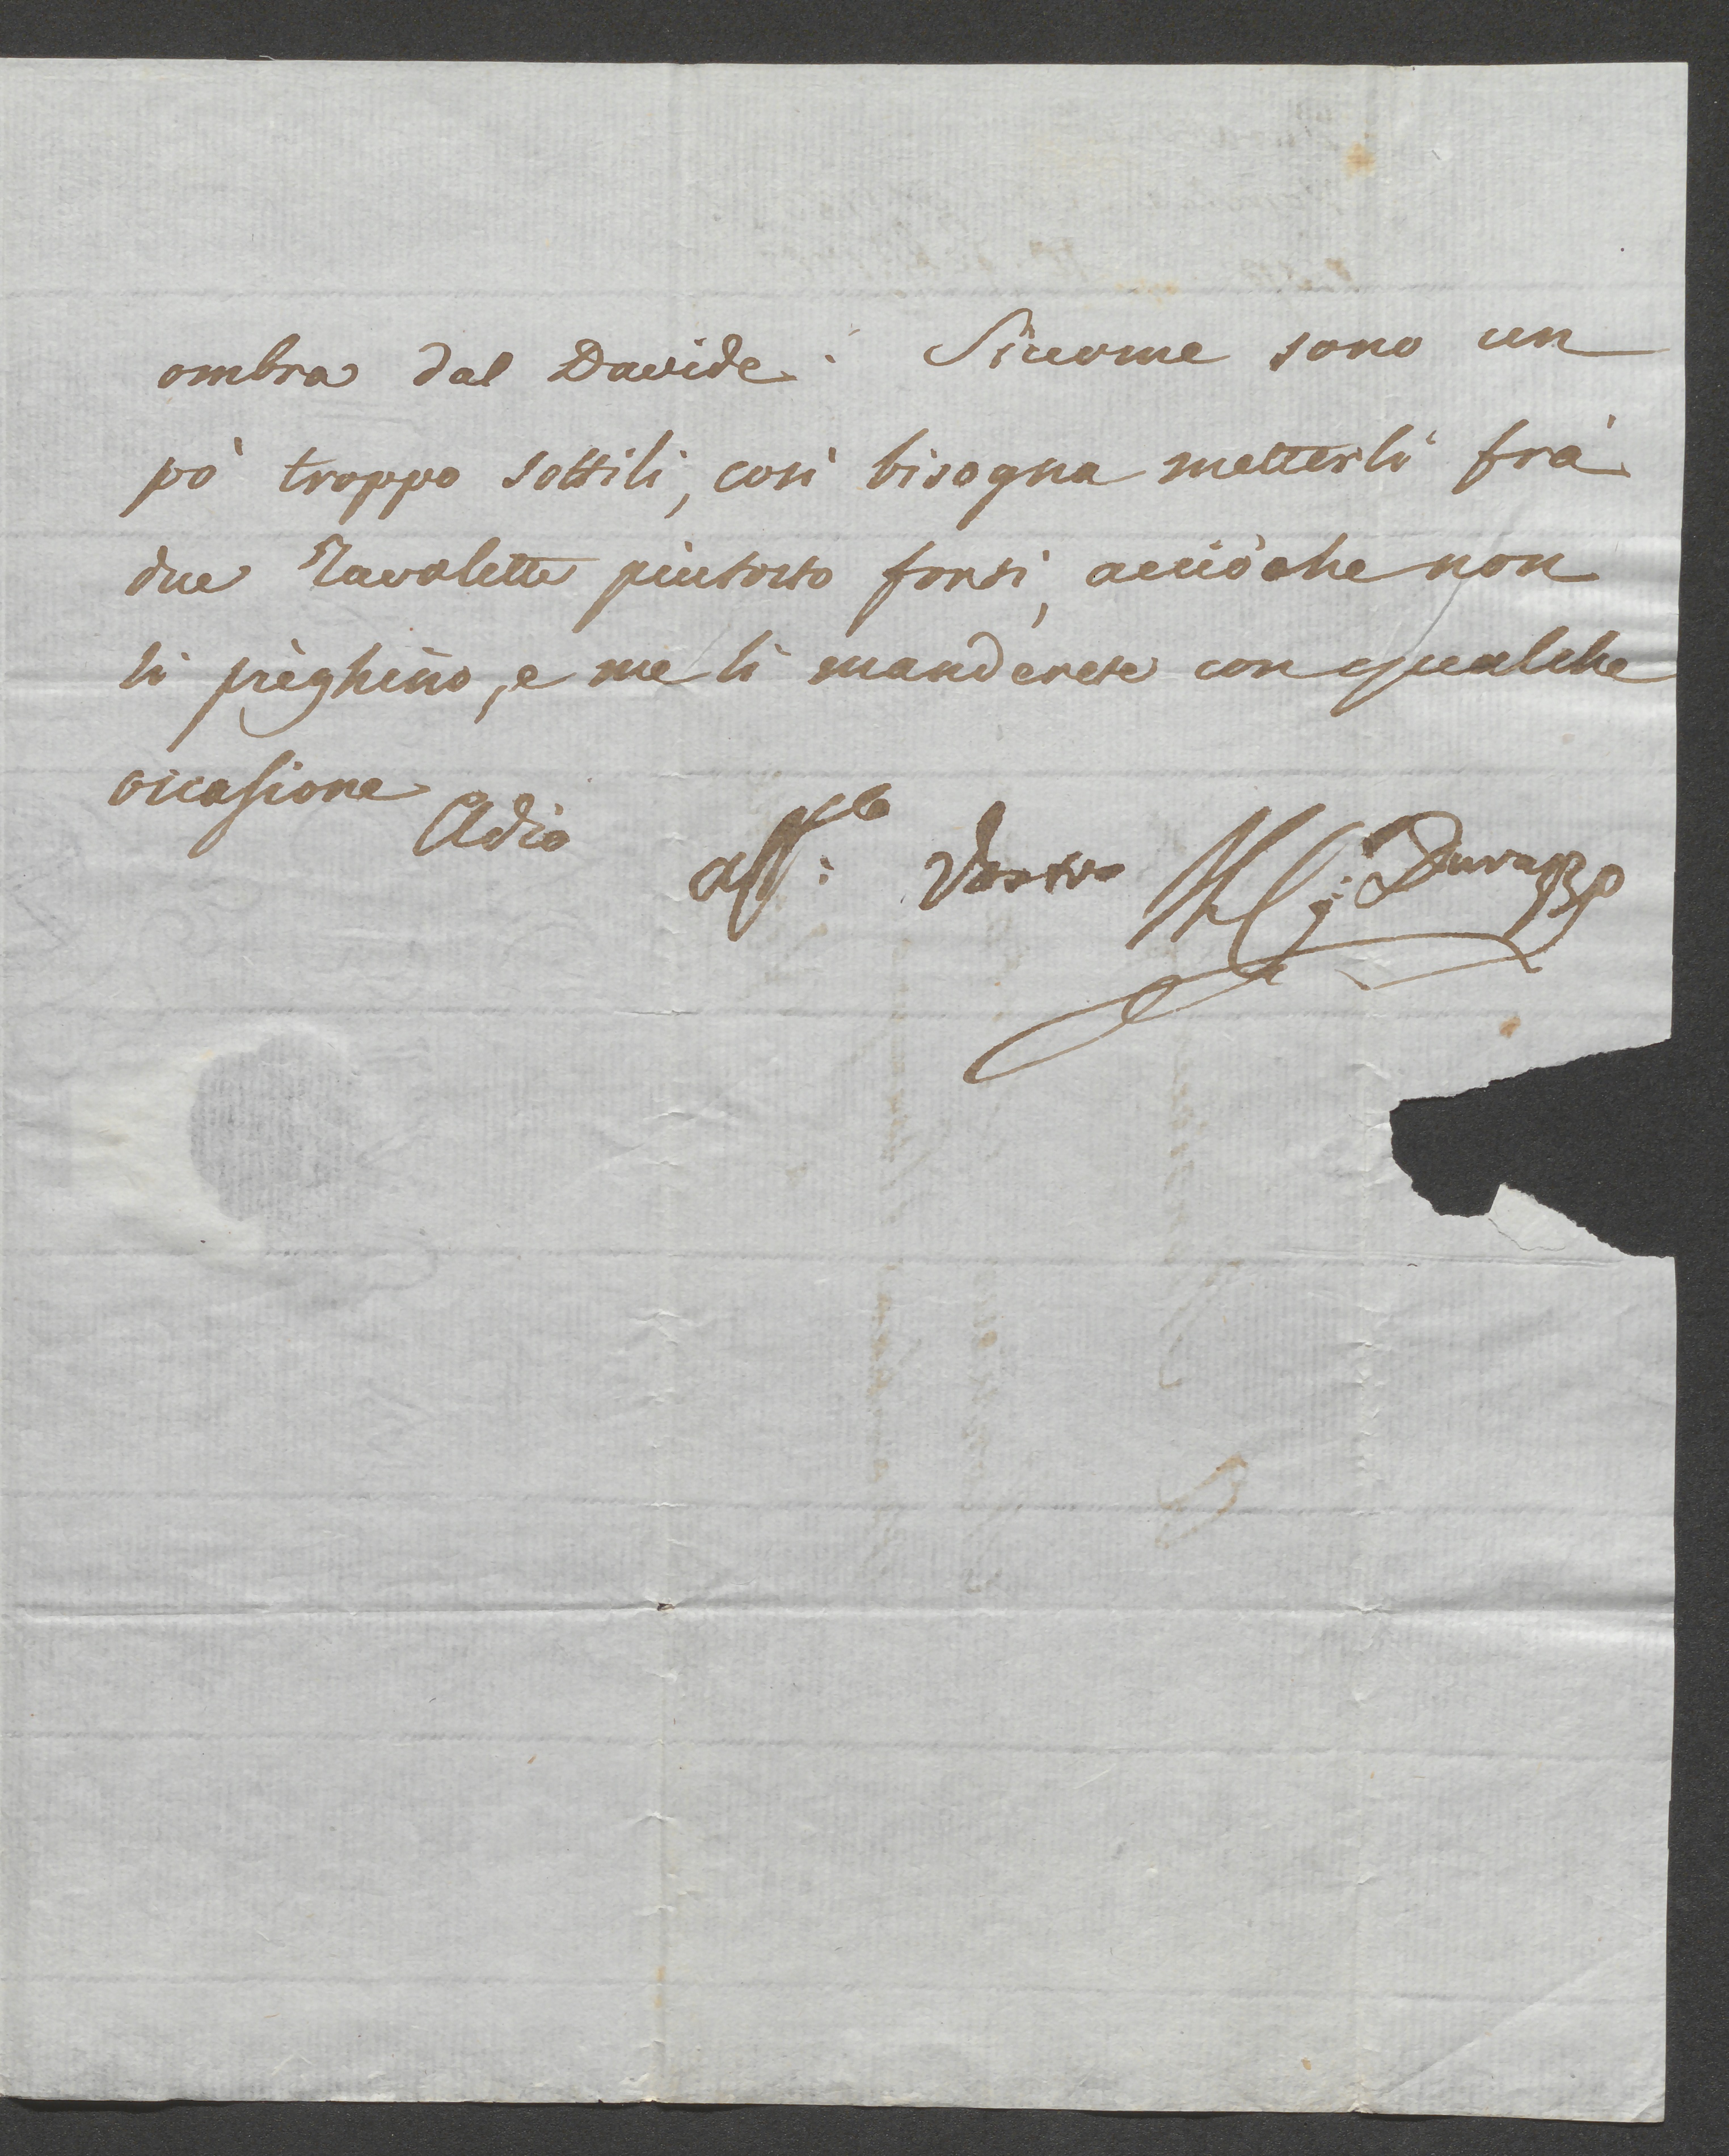 ombra dal Davide. Siccome sono un
pò troppo sottili, così bisogna metterli frà
due Tavolette piutosto forti, acciòche non
si pieghino, e me li manderete con qualche
occasione
Adio
aff: Vostro Durazzo